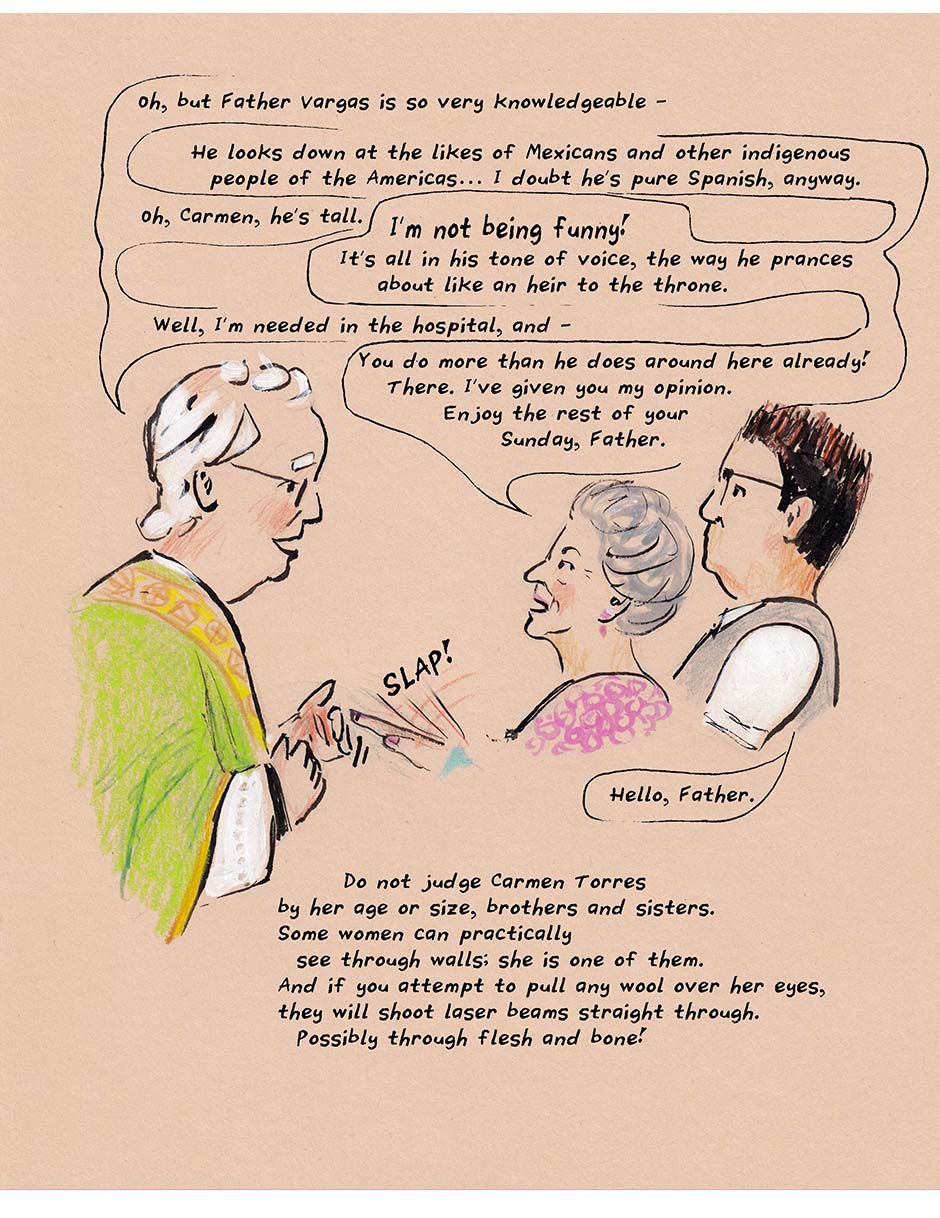 Oh, but Father Vargas is so very knowledgeable –
He looks down at the likes of Mexicans and other indigenous
people of the Americas... I doubt he's pure Spanish, anyway.
Oh, Carmen, he's tall.
I'm not being funny!
It's all in his tone of voice, the way he prances
about like an heir to the throne.
Well, I'm needed in the hospital, and –
You do more than he does around here already!
There. I've given you my opinion.
Enjoy the rest of your
Sunday, Father.
SLAP!
Hello, Father.
Do not judge Carmen Torres
by her age or size, brothers and sisters.
Some women can practically
see through walls; she is one of them.
And if you attempt to pull any wool over her eyes,
they will shoot laser beams straight through.
Possibly through flesh and bone!